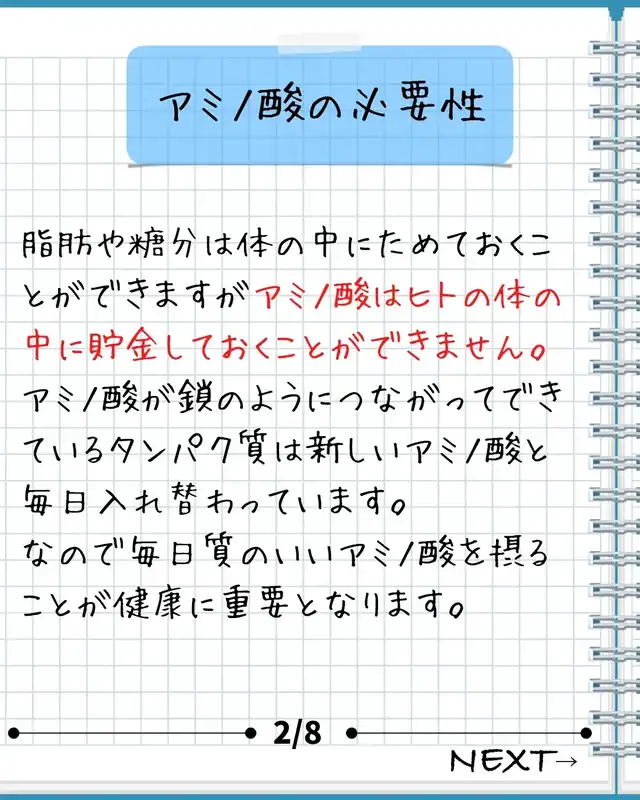 アミノ酸の必要性
脂肪や糖分は体の中にためておくこ
とができますがアミノ酸はヒトの体の
中に貯金しておくことができません。
アミノ酸が鎖のようにつながってでき
ているタンパク質は新しいアミノ酸と
毎日入れ替わっています。
なので毎日質のいいアミノ酸を摂る
ことが健康に重要となります。
2/8
NEXT→